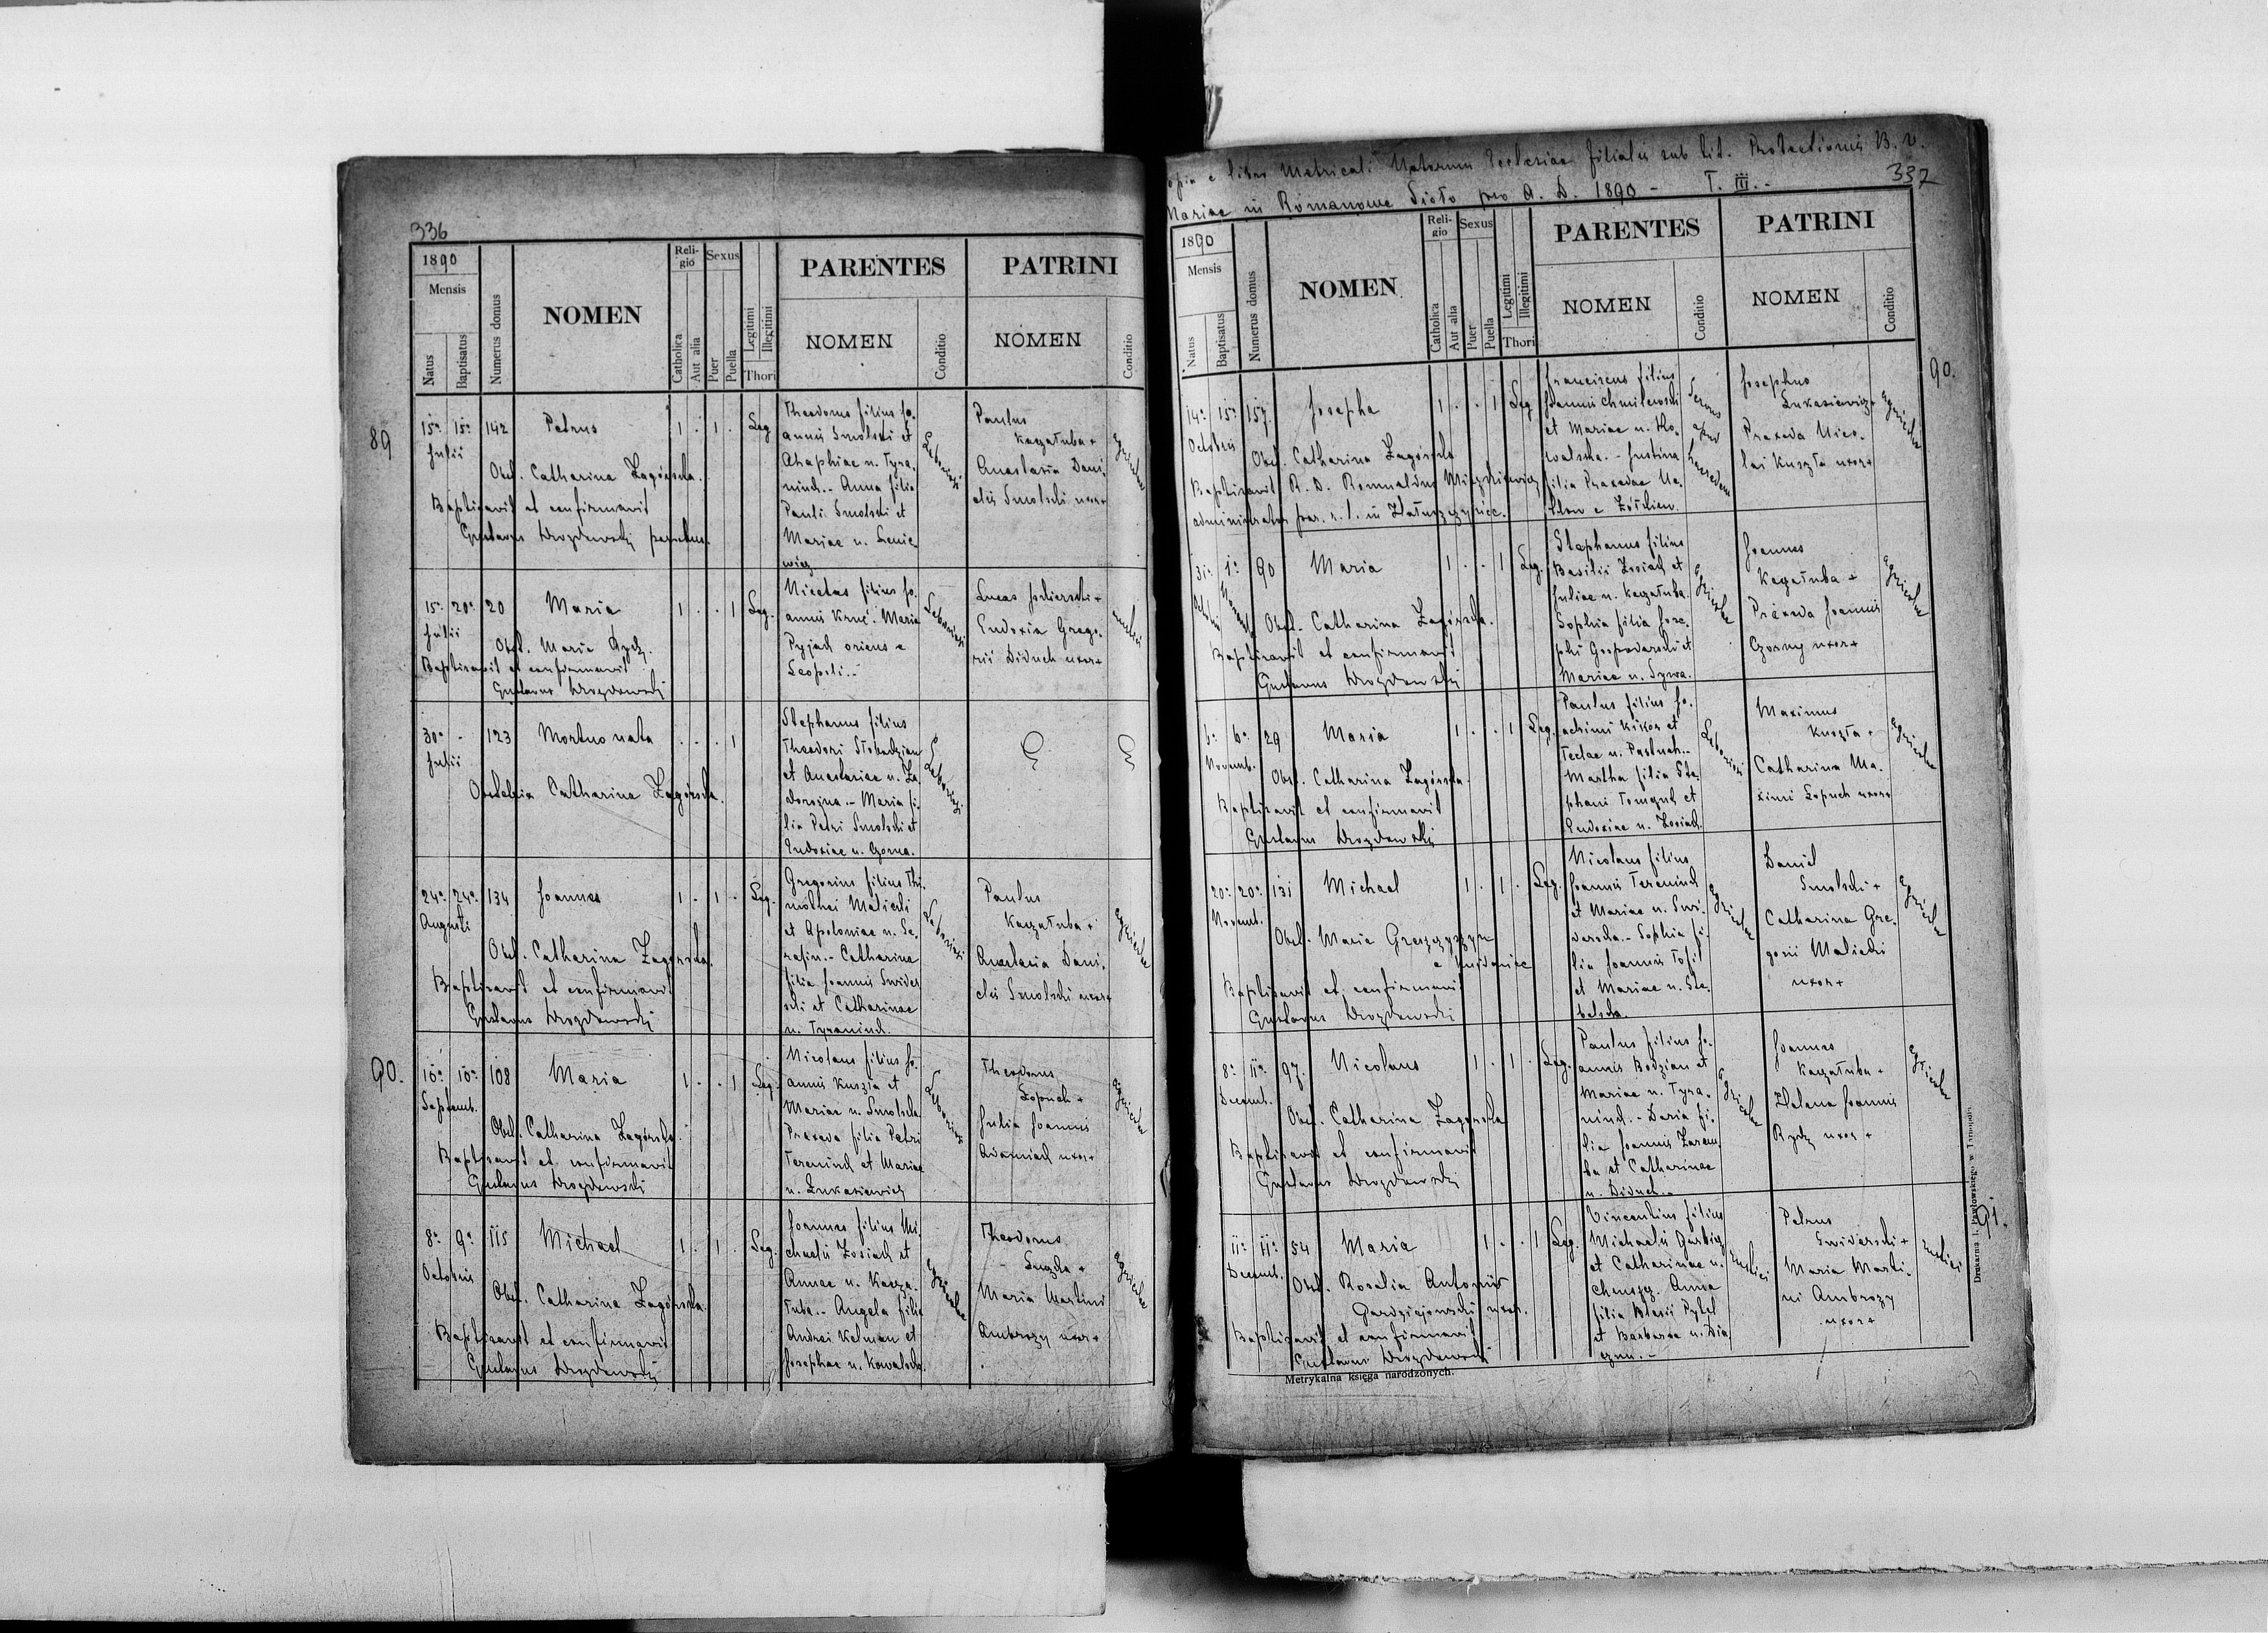 336
1890
Mensis
Natus
Baptisatus
Numerus domus
NOMEN
Religio
Catholica
Aut alia
Sexus
Puer
Puella
Legitimi
Illegitimi
Thori
PARENTES
NOMEN
Conditio
PATRINI
NOMEN
Conditio
89
15a 15a 142 Petrus 1 . 1 . Leg
Julii
Obst. Catharina Zagórska.
Baptisavit et confirmavit
Gustavus Drozdowski parochus.
Theodorus filius Jo-
annis Smolski et
Ahaphiae n. Tyra-
nind. - Anna filia
Pauli Smolski et
Mariae n. Senie-
wicz
Paulus
Kaczałuba +
Anastasia Dani-
elis Smolski uxor +
15a 20a 20 Maria 1 . . 1 Leg.
Julii
Obst. Maria Rydz.
Baptisavit et confirmavit
Gustavus Drozdowski
Nicetas filius Jo-
annis Kruć. Maria
Pyjad oriens e
Leopoli. -
Lucas
Eudoxia Grego-
rii Diduch uxor +
30a - 123 Mortuo nata . . . 1
Julii
Obstetrix Catharina Zagórska.
Stephanus filius
Theodori Słobodzian
et Anastasiae n. Za-
dorojna. - Maria fi-
lia Petri Smolski et
Eudoxiae n. Czorna.
24a 24a 134 Joannes 1 . 1 . Leg.
Augusti
Obst. Catharina Zagórska.
Baptisavit et confirmavit
Gustavus Drozdowski
Gregorius filius Thi-
mothei Malicki
et Apoloniae n. Se-
rafin. - Catharina
filia Joannis Swider-
ski et Catharinae
n. Tyranind.
Paulus
Kaczałuba +
Anastasia Dani-
elis Smolski uxor +
90.
10a 10a 108 Maria 1 . . 1 Leg.
Septemb.
Obst. Catharina Zagórska.
Baptisavit et confirmavit
Gustavus Drozdowski
Nicolaus filius Jo-
annis Kuszła et
Mariae n. Smolska
Praxeda filia Petri
Tereniud et Mariae
n. Łukasiewicz
Theodorus
Łopuch +
Julia Joannis
Adamiach uxor +
8a 9a 115 Michael 1 . 1 . Leg.
Octobris
Obst. Catharina Zagórska.
Baptisavit et confirmavit
Gustavus Drozdowski
Joannes filius Mi-
chaelis Zosiach et
Annae n. Kacza-
łuba. - Angela filia
Andrei Kelman et
Josephae n. Kowalska.
Theodorus
Maria Martini
Ambrozy uxor +
Copia e libro Metricali Natorum Ecclesiae filialis sub tit. Protectionis B. V.
Mariae in Romanowe Sioło pro A. D. 1890 - T. III. -
337
1890
Mensis
Natus
Baptisatus
Numerus domus
NOMEN
Religio
Catholica
Aut alia
Sexus
Puer
Puella
Legitimi
Illegitimi
Thori
PARENTES
NOMEN
Conditio
PATRINI
NOMEN
Conditio
90.
14a 15a 157. Josepha 1 . . 1 Leg
Octobris
Obst. Catharina Zagórska
Baptisavit R. D. Romualdus
administrator par. r. l. in
Franciscus filius
Joannis Chmilewski
et Mariae n. Ko-
walska. - Justina
filia Praxedae
Josephus
Łukasiewicz +
Praxeda Nico-
lai Kuszła uxor +
31a 1a 90 Maria 1 . . 1 Leg.
Obst. Catharina Zagórska.
Baptisavit et confirmavit
Gustavus Drozdowski
Stephanus filius
Basilii Zosiach et
Juliae n. Kaczałuba.
Sophia filia Jose-
phi Gospodarski et
Mariae n. Sywa.
Joannes
Kaczałuba +
Praxeda Joannis
Czorny uxor +
6a 6a 29 Maria 1 . . 1 Leg.
Novemb.
Obst. Catharina Zagórska.
Baptisavit et confirmavit
Gustavus Drozdowski
Paulus filius Jo-
achimi Kikos et
Teclae n. Pastuch. -
Martha filia Ste-
phani Tomczuk et
Eudoxiae n. Zosiach.
Maximus
Kuszła +
Catharina Ma-
ximi Łopuch uxor +
20a 20a 131 Michael 1 . 1 . Leg.
Novemb.
Obst. Maria Greszczyszyn
Baptisavit et confirmavit
Gustavus Drozdowski
Nicolaus filius
Joannis Tereniud
et Mariae n. Swi-
derska. - Sophia fi-
lia Joannis Tofil
et Mariae n. Ste-
belska.
Daniel
Smolski +
Catharina Gre-
gorii Malicki
uxor +
8a 11a 97. Nicolaus 1 . 1 . Leg.
Decemb.
Obst. Catharina Zagórska
Baptisavit et confirmavit
Gustavus Drozdowski
Paulus filius Jo-
annis Bodzian et
Mariae n. Tyra-
nind. - Daria fi-
lia Joannis Zarem-
ba et Catharinae
n. Diduch. -
Joannes
Kaczałuba +
Helena Joannis
Rydz uxor +
91.
11a 11a 54 Maria 1 . . 1 Leg.
Decemb.
Obst. Rosalia Antonii
Gordziejewski uxor.
Baptisavit et confirmavit
Gustavus Drozdowski
Vincentius filius
Michaelis Garbicz
et Catharinae n.
Anna
filia Blasii Pytel
et Barbarae n.
Petrus
Swiderski +
Maria Marti-
ni Ambrozy
uxor +
rustici
Metrykalna księga narodzonych.